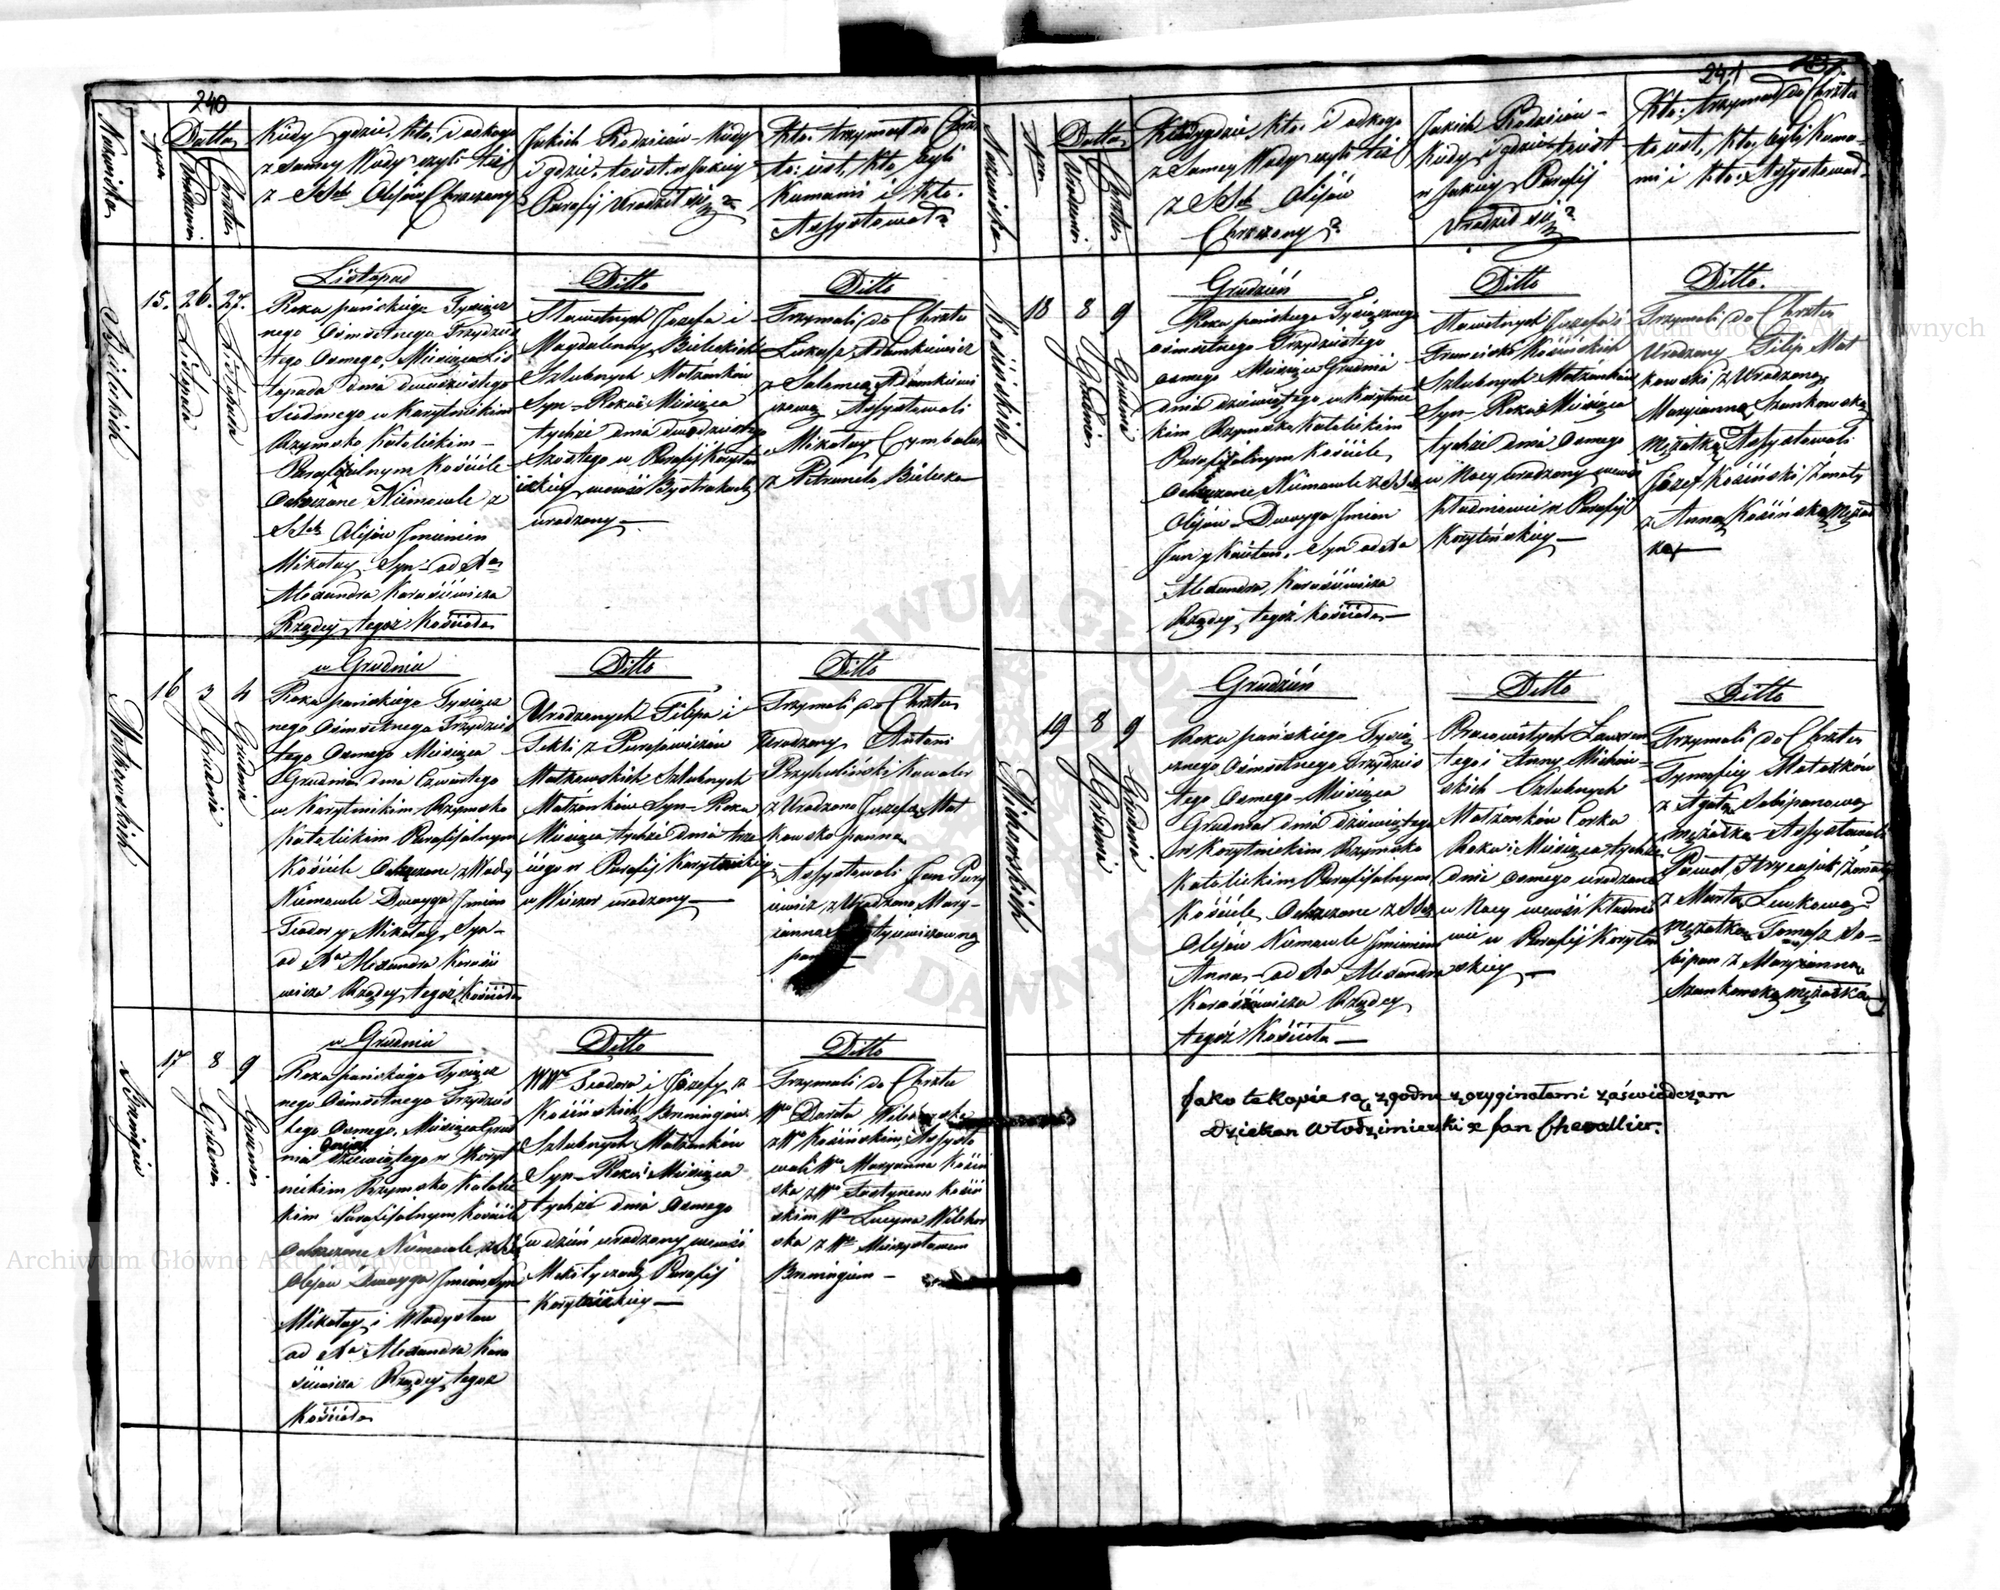 240
Nazwiska
Nura
Datta
Urodzenia
Chrztu
Kiedy gdzie, kto, i od kogo
z samey Wody czyli też
z SSch Olejów Chrzczony
Jakich Rodziców Kiedy
i gdzie, to iest w jakiey
Parafij Urodził się?
Kto: trzymał do Chrztu
to: iest, kto, byli
Kumami i kto:
Assystował?
Bieleckich
15. 26. 27.
Listopada
Listopada
Listopad
Roku pańskiego Tysiącz
nego Osmsetnego Trzydzies
tego Osmego, Miesiąca Lis
topada dnia dwudziestego
Siodmego w Korytnickim
Rzymsko Katolickim
Parafijalnym Kościele
Ochrzczone Niemowle z
SSch Olejów Jmieniem
Mikołay Syn od Xa
Alexandra Karasiewicza
Rządcy tegoż Kościoła
Ditto
Sławetnych Jozefa i
Magdaleny Bieleckich
Szlubnych Małżonków
Syn Roku i Miesiąca
tychże dnia dwudziestego
Szostego w Parafij Korytni
ckiey wewsi Bystrakach
urodzony
Ditto
Trzymali do Chrztu
Łukasz Adamkiewicz
z Salomeą Adamkiewi
czową Assystowali
Mikołay Cymbaler
z Petrunelą Bielecką
Małkowskich
16 3 4
Grudnia
Grudnia
w Grudniu
Roku pańskiego Tysiącz
nego Osmsetnego Trzydzies
tego Osmego Miesiąca
Grudnia dnia Czwartego
w Korytnickim Rzymsko
Katolickim Parafijalnym
Kościele Ochrzczone z Wody
Niemowle Dwoyga Jmion
Teodor y Mikołay Syn
od Xa Alexandra Karasie
wicza Rządcy tegoż Kościoła
Ditto
Urodzonych Filipa i
Tekli z
Małkowskich Szlubnych
Małżonków Syn Roku
Miesiąca tychże dnia trze
ciego w Parafij Korytnickiey
w Wieczor urodzony
Ditto
Trzymali do Chrztu
Urodzony Antoni
Przybuliński Kawaler
z Urodzoną Jozefą Mał
kowską panną
Assystowali Jan
z Urodzoną Mary
anną
Breningów
17 8 9
Grudnia
Grudnia
w Grudniu
Roku pańskiego Tysiącz
nego Osmsetnego Trzydzies
tego Osmego, Miesiąca Grud
nia dnia dziewiątego w Koryt
nickim Rzymsko Katolic
kim Parafijalnym Kościele
Ochrzczone Niemowle z SSch
Olejow Dwoyga Jmion Syn
Mikołay i Władysław
od Xa Alexandra Kara
siewicza Rządcy tegoż
Kościoła
Ditto
WWch Teodora i Jozefy z
Kosińskich Breningów
Szlubnych Małżonków
Syn Roku i Miesiąca
tychże dnia Osmego
w dzień urodzony wewsi
Parafij
Korytnickiey
Ditto
Trzymali do Chrztu
Wa Dorota
z Wm Kosińskim Assysto
wali Wa Maryanna Kosiń
ska z Wm Justynem Kosiń
skim Wa Lucyna
ska z Wm Mieczysławem
Breningiem
241
Nazwiska
Nura
Datta
Urodzenia
Chrztu
Kiedy gdzie, kto, i od kogo
z Samey Wody czyli też
z SSch Olijów
Chrzczony?
Jakich Rodziców
Kiedy i gdzie to iest
w Jakiey Parafij
Urodził się?
Kto: trzymał do Chrztu
to iest, kto, byli Kuma
mi i kto: Assystował
Kosińskich
18 8 9
Grudnia
Grudnia
Grudzień
Roku pańskiego Tysiącznego
osmsetnego Trzydziestego
osmego Miesiąca Grudnia
dnia dziewiątego w Korytnic
kim Rzymsko Katolickim
Parafijalnym Kościele
Ochrzczone Niemowle z SSch
Olijów Dwoyga Jmion
Jan y Kajetan Syn od Xa
Alexandra Karasiewicza
Rządcy tegoż Kościoła
Ditto
Sławetnych Jozefa i
Franciszki Kosińskich
Szlubnych Małżonków
Syn Roku i Miesiąca
tychże dnia Osmego
w Nocy urodzony wewsi
Kładniewie w Parafij
Korytnickiey
Ditto.
Trzymali do Chrztu
Urodzony Filip Mał
kowski z Urodzoną
Maryanną Szankowską
Mężatką Assystowali
Jozef Kosiński Żonaty
z Anną Kosińską Mężat
ką
Michowskich
19 8 9
Grudnia
Grudnia
Grudzień
Roku pańskiego Tysią
cznego Osmsetnego Trzydzies
tego Osmego Miesiąca
Grudnia dnia dziewiątego
w Korytnickim Rzymsko
Katolickim Parafijalnym
Kościele Ochrzczone z SSch
Olejów Niemowle Jmieniem
Anna od Xa Alexandra
Karasiewicza Rządcy
tegoż Kościoła
Ditto
Pracowitych Lawren
tego i Anny Michow
skich Szlubnych
Małżonków Corka
Roku i Miesiąca tychże
dnia osmego urodzona
w Nocy wewsi Kładnie
wie w Parafij Korytni
ckiey
Ditto
Trzymali do Chrztu
Tymofiey
z Agatą
mężatką Assystowali
Paweł Żonaty
z Martą
mężatką Tomasz
z Maryanną
Szankowską mężatką
Jako te kopie są zgodne z oryginałami zaświadczam
Dziekan Włodzimierski x Jan Chevallier.
Archiwum Główne Akt Dawnych
Archiwum Główne Akt Dawnych
ARCHIWUM GŁÓWNE AKT DAWNYCH